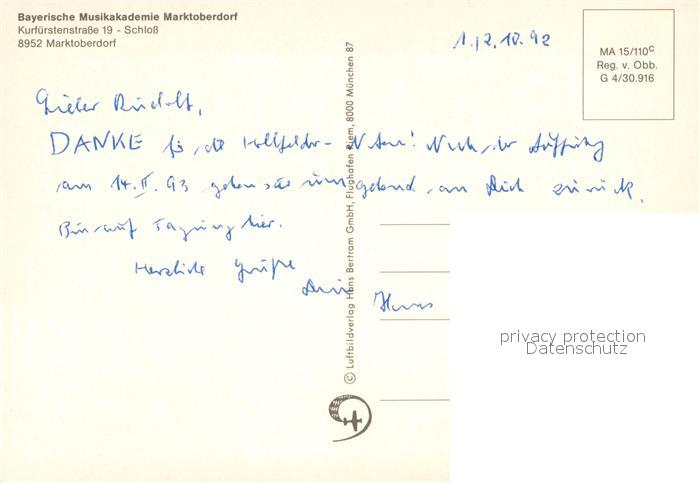 Bayerische Musikakademie Marktoberdorf
Kurfürstenstraße 19 - Schloß
8952 Marktoberdorf
1./2.10.92
MA 15/110c
Reg. v. Obb.
G 4/30.916
Lieber Rudolf,
DANKE für die Hollfelder-Noten! Nach der Aufführung
am 14.II.93 gehen sie umgehend an Dich zurück.
Bin auf Tagung hier.
Herzliche Grüße
Dein Hans
© Luftbildverlag Hans Bertram GmbH, Flughafen Riem, 8000 München 87
privacy protection
Datenschutz